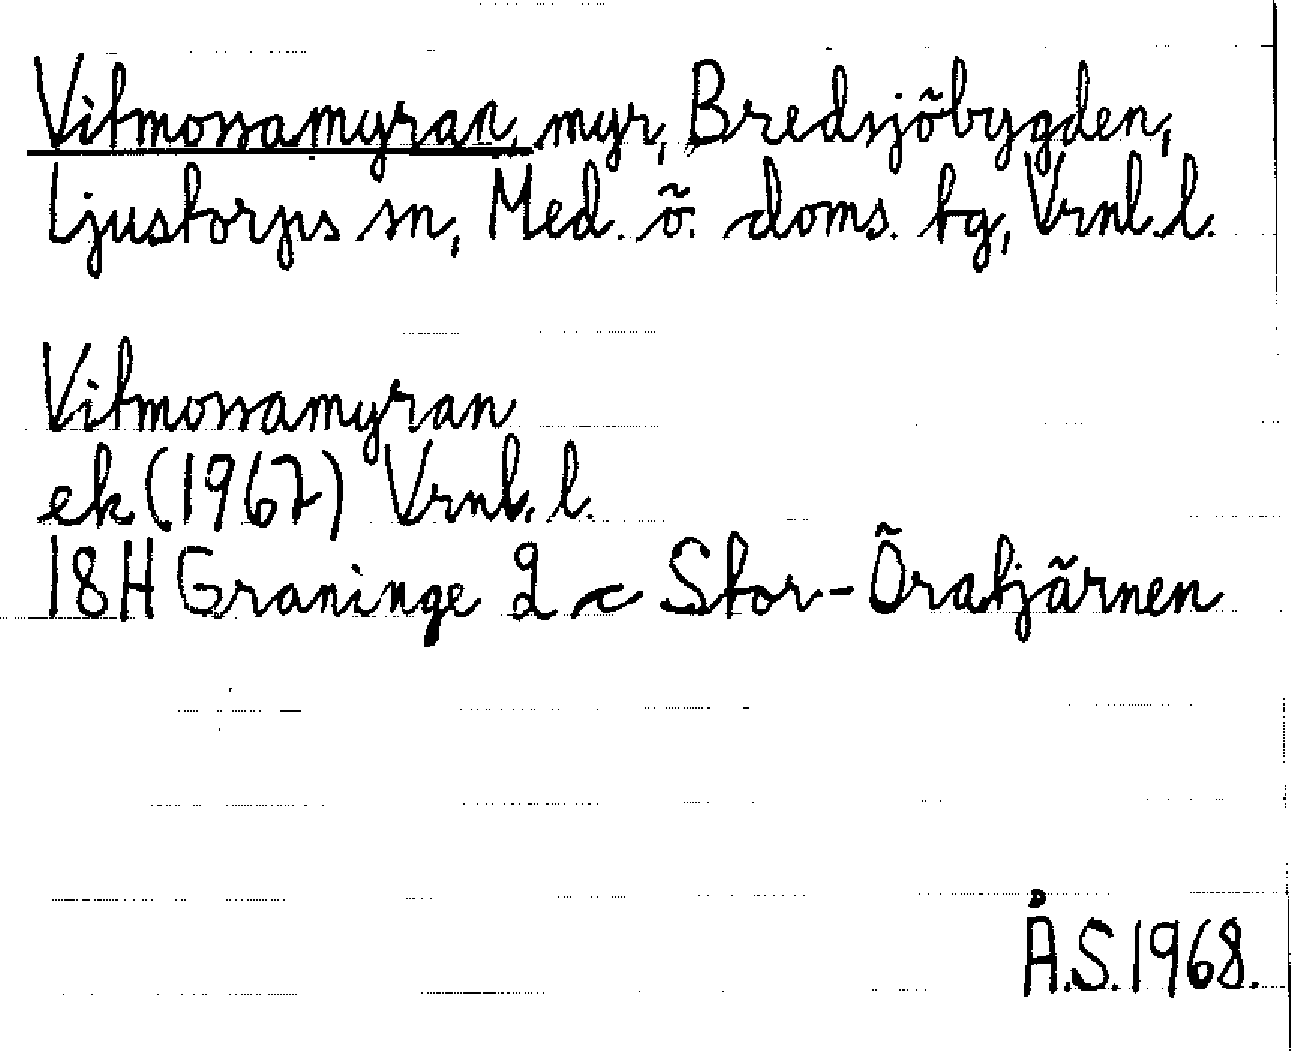 Vitmossamyran, myr, Bredsjöbygden,
Ljustorps sn, Med. ö. doms. tg, Vrnl. l.
Vitmossamyran
ek (1967) Vrnl. l.
18H Graninge 2 c Stor-Öratjärnen
Å.S. 1968.